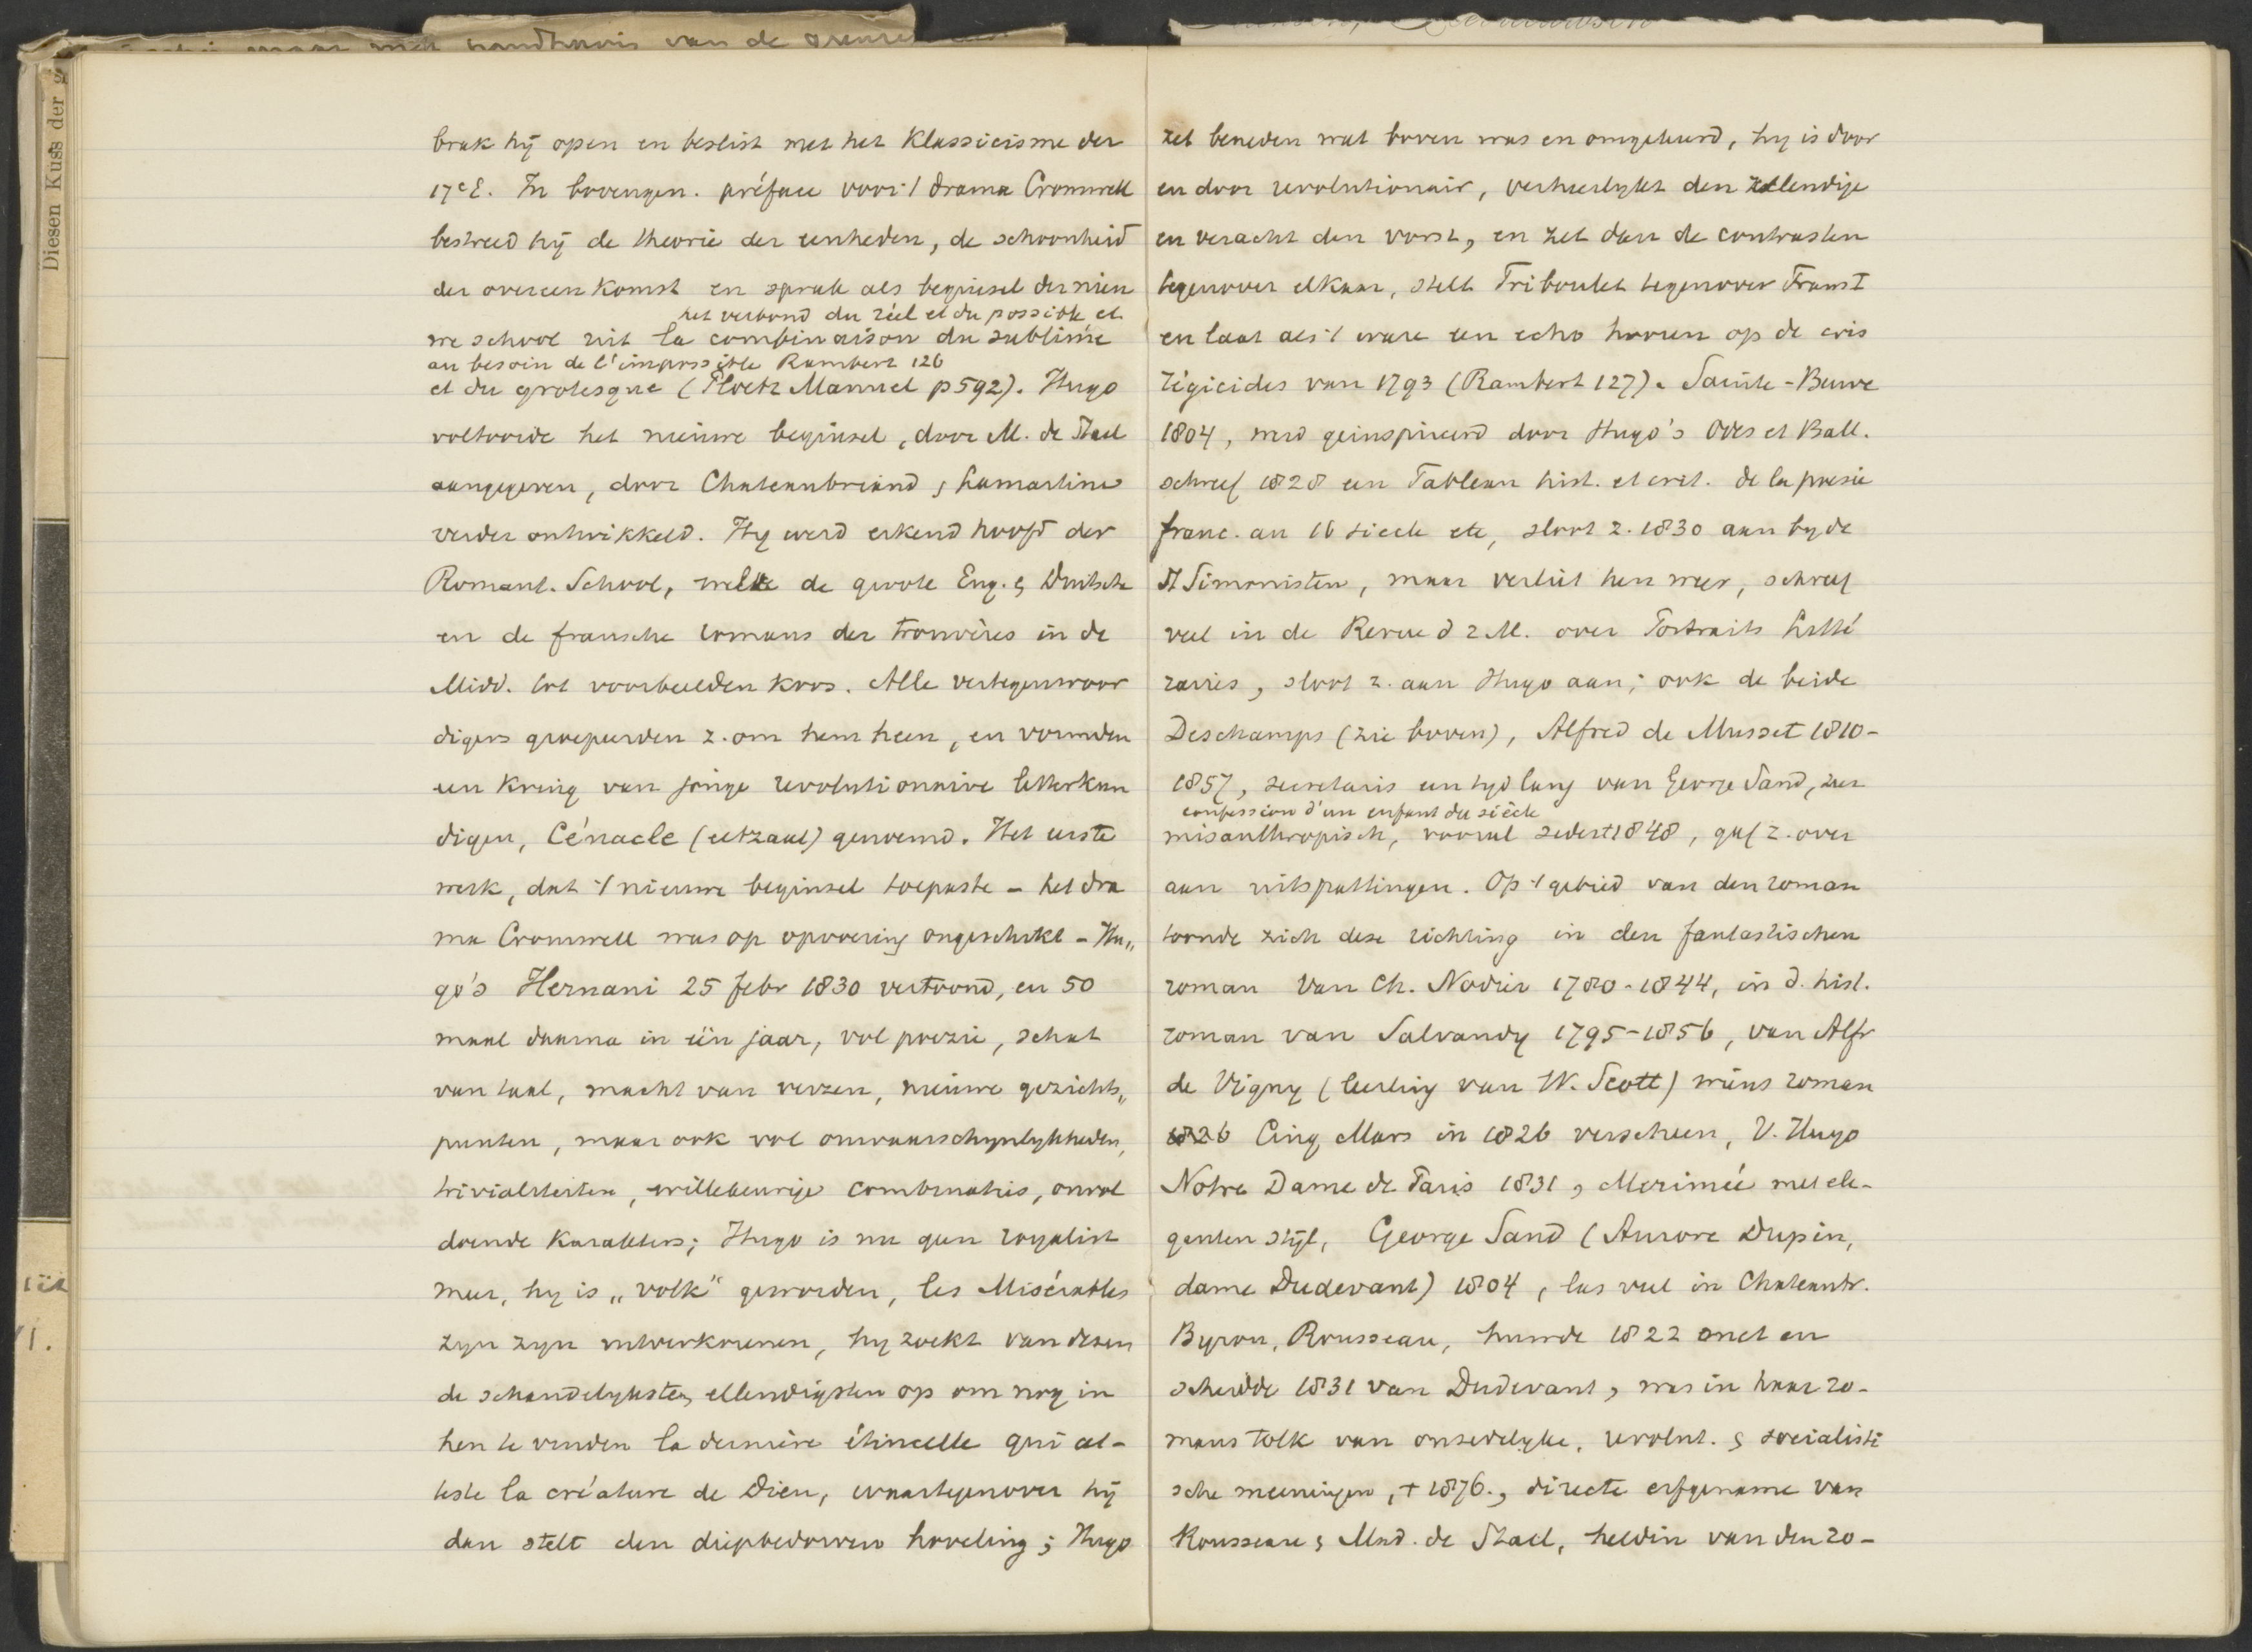 brak hij open en beslist met het Klassicisme der
17e E. In bovengen. préface voor 't drama Cromwell
bestreed hij de theorie der eenheden, de schoonheid
der overeenkomst en sprak als beginsel der nieu
het verbond du réel et du possible et
we school uit la combinaison du sublime
au besoin de l'impossible Rambert 126
et du grotesque (Ploetz Manuel p 592). Hugo
voltooide het nieuwe beginsel, door M. de Stael
aangegeven, door Chateaubriand & Lamartine
verder ontwikkeld. Hy werd erkend hoofd der
Romant. School, welke de groote Eng. & Duitsche
en de fransche romans der trouvères in de
Midd. tot voorbeelden koos. Alle vertegenwoor
digers groepeerden z. om hem heen, en vormden
een kring van jonge revolutionnaire letterkun
digen, Cénacle (eetzaal) genoemd. Het eerste
werk, dat 't nieuwe beginsel toepaste - het dra
ma Cromwell was op opvoering ongeschikt - Hu„
go's Hernani 25 febr 1830 vertoond, en 50
maal daarna in één jaar, vol poezie, schat
van taal, macht van verzen, nieuwe gezichts„
punten, maar ook vol onwaarschynlykheden,
trivialiteiten, willekeurige combinaties, onvol
doende karakters; Hugo is nu geen royalist
meer, hy is „volk" geworden, les Misérables
zyn zyn uitverkorenen, hy zoekt van dezen
de schandelykste & ellendigsten op om nog in
hen te vinden la dernière étincelle qui at-
teste la créature de Dieu, waartegenover hij
dan stelt den diepbedorven hoveling; Hugo
zet beneden wat boven was en omgekeerd, hy is door
en door revolutionair, verheerlykt den ellendige
en veracht den vorst, en zet dan de contrasten
tegenover elkaar, stelt Triboulet tegenover Frans I
en laat als 't ware een echo hooren op de cris
régicides van 1793 (Rambert 127). Sainte-Beuve
1804, werd geinspireerd door Hugo's Odes et Ball.
schreef 1828 een Tableau hist. et crit. de la poesie
franc. au 16 siecle etc, sloot z. 1830 aan by de
St Simonisten, maar verliet hen weer, schreef
veel in de Revue d 2 M. over Portraits Litté
raires, sloot z. aan Hugo aan; ook de beide
Deschamps (zie boven), Alfred de Musset 1810-
1857, secretaris een tyd lang van George Sand, zeer
confession d'un enfant du siècle
misanthropisch, vooral sedert 1848, gaf z. over
aan uitspattingen. Op 't gebied van den roman
toonde zich deze richting in den fantastischen
roman van Ch. Nodier 1780-1844, in d. hist.
roman van Salvandy 1795-1856, van Alfr
de Vigny (leerling van W. Scott) wiens roman
1826 Cinq Mars in 1826 verscheen, V. Hugo
Notre Dame de Paris 1831, Merimée met ele-
ganten stijl, George Sand (Aurore Dupin,
dame Dudevant) 1804, las veel in Chateaubr.
Byron, Rousseau, huwde 1822 met en
scheidde 1831 van Dudevant, was in haar ro-
mans tolk van onzedelyke, revolut. & socialisti
sche meeningen, † 1876., directe erfgename van
Rousseau & Mad. de Stael, heldin van den ro-
Diesen Kuss der